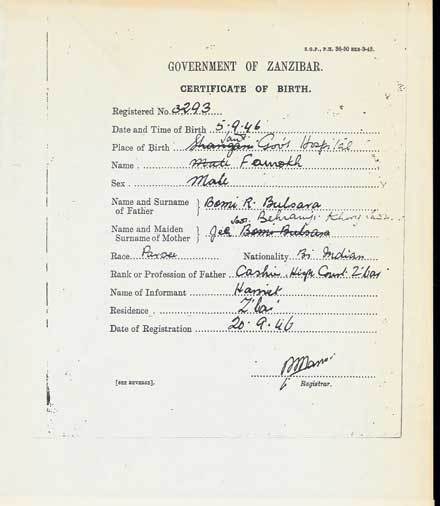 S.G.P., P.H. 36-50 BKS-3-43.
GOVERNMENT OF ZANZIBAR.
CERTIFICATE OF BIRTH.
Registered No. 3293
Date and Time of Birth 5.9.46
Place of Birth Shangani Gov's Hospital
Name Farrokh
Sex Male
Name and Surname of Father } Bomi R. Bulsara
Name and Maiden Surname of Mother } Jer Bomi Bulsara
Race Parsee Nationality Br Indian
Rank or Profession of Father Cashier, High Court Z'bar
Name of Informant Harriet
Residence Z'bar
Date of Registration 20.9.46
[SEE REVERSE].
Registrar.